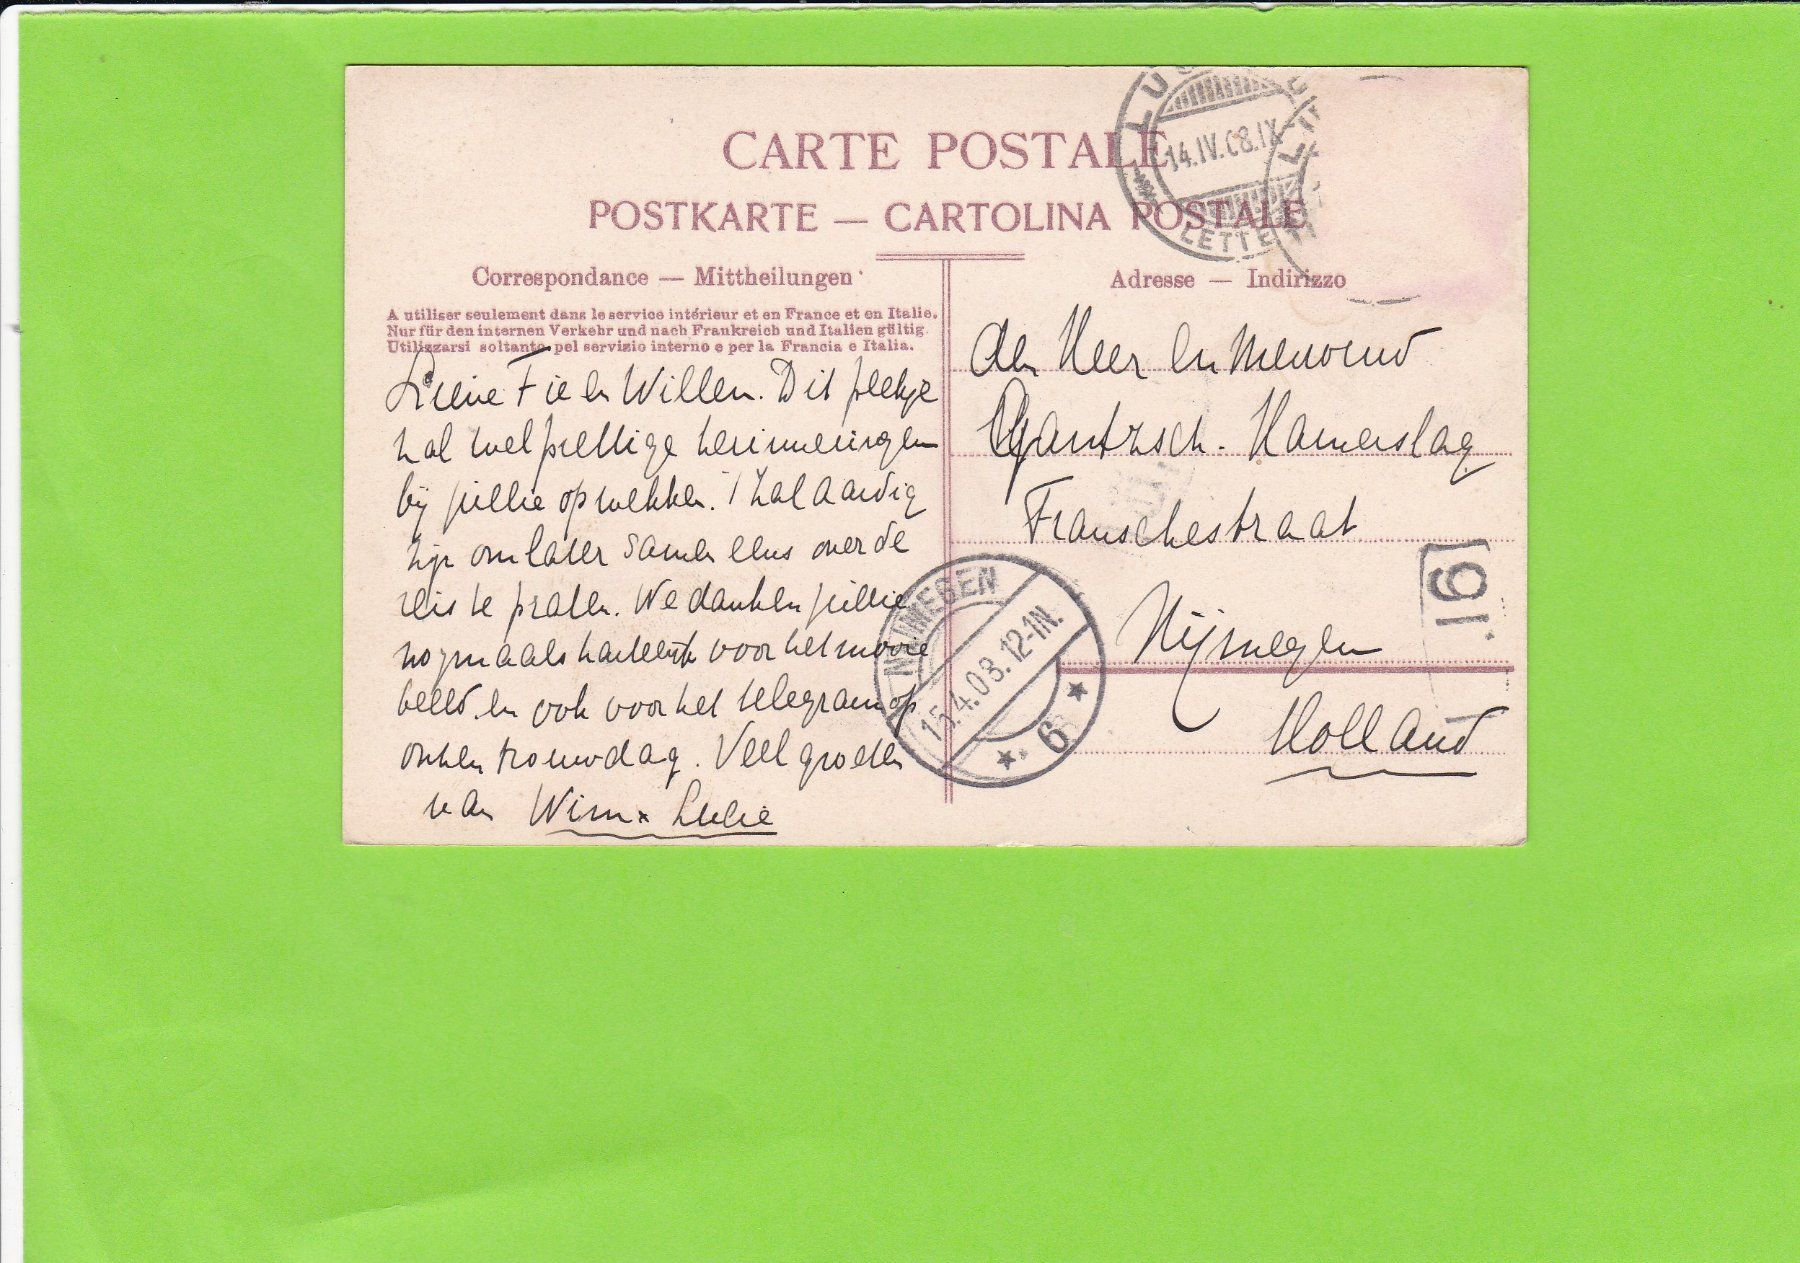 CARTE POSTALE
POSTKARTE — CARTOLINA POSTALE
14.IV.08.IX
LETTE
Correspondance — Mittheilungen
Adresse — Indirizzo
A utiliser seulement dans le service intérieur et en France et en Italie.
Nur für den internen Verkehr und nach Frankreich und Italien gültig
Utilizzarsi soltanto pel servizio interno e per la Francia e Italia.
Lieve Fie en Willem. Dit plekje
zal wel prettige herinneringen
bij jullie opwekken. 't Zal aardig
zijn om later samen eens over de
reis te praten. We danken jullie
nogmaals hartelijk voor het mooie
beeld en ook voor het telegram op
onzen trouwdag. Veel groeten
van Wim x Lucie
den Heer en Mevrouw
Gantzsch-Hamerslag
Franschestraat
Nijmegen
Holland
NIJMEGEN
15.4.08.12-1N.
6
191.